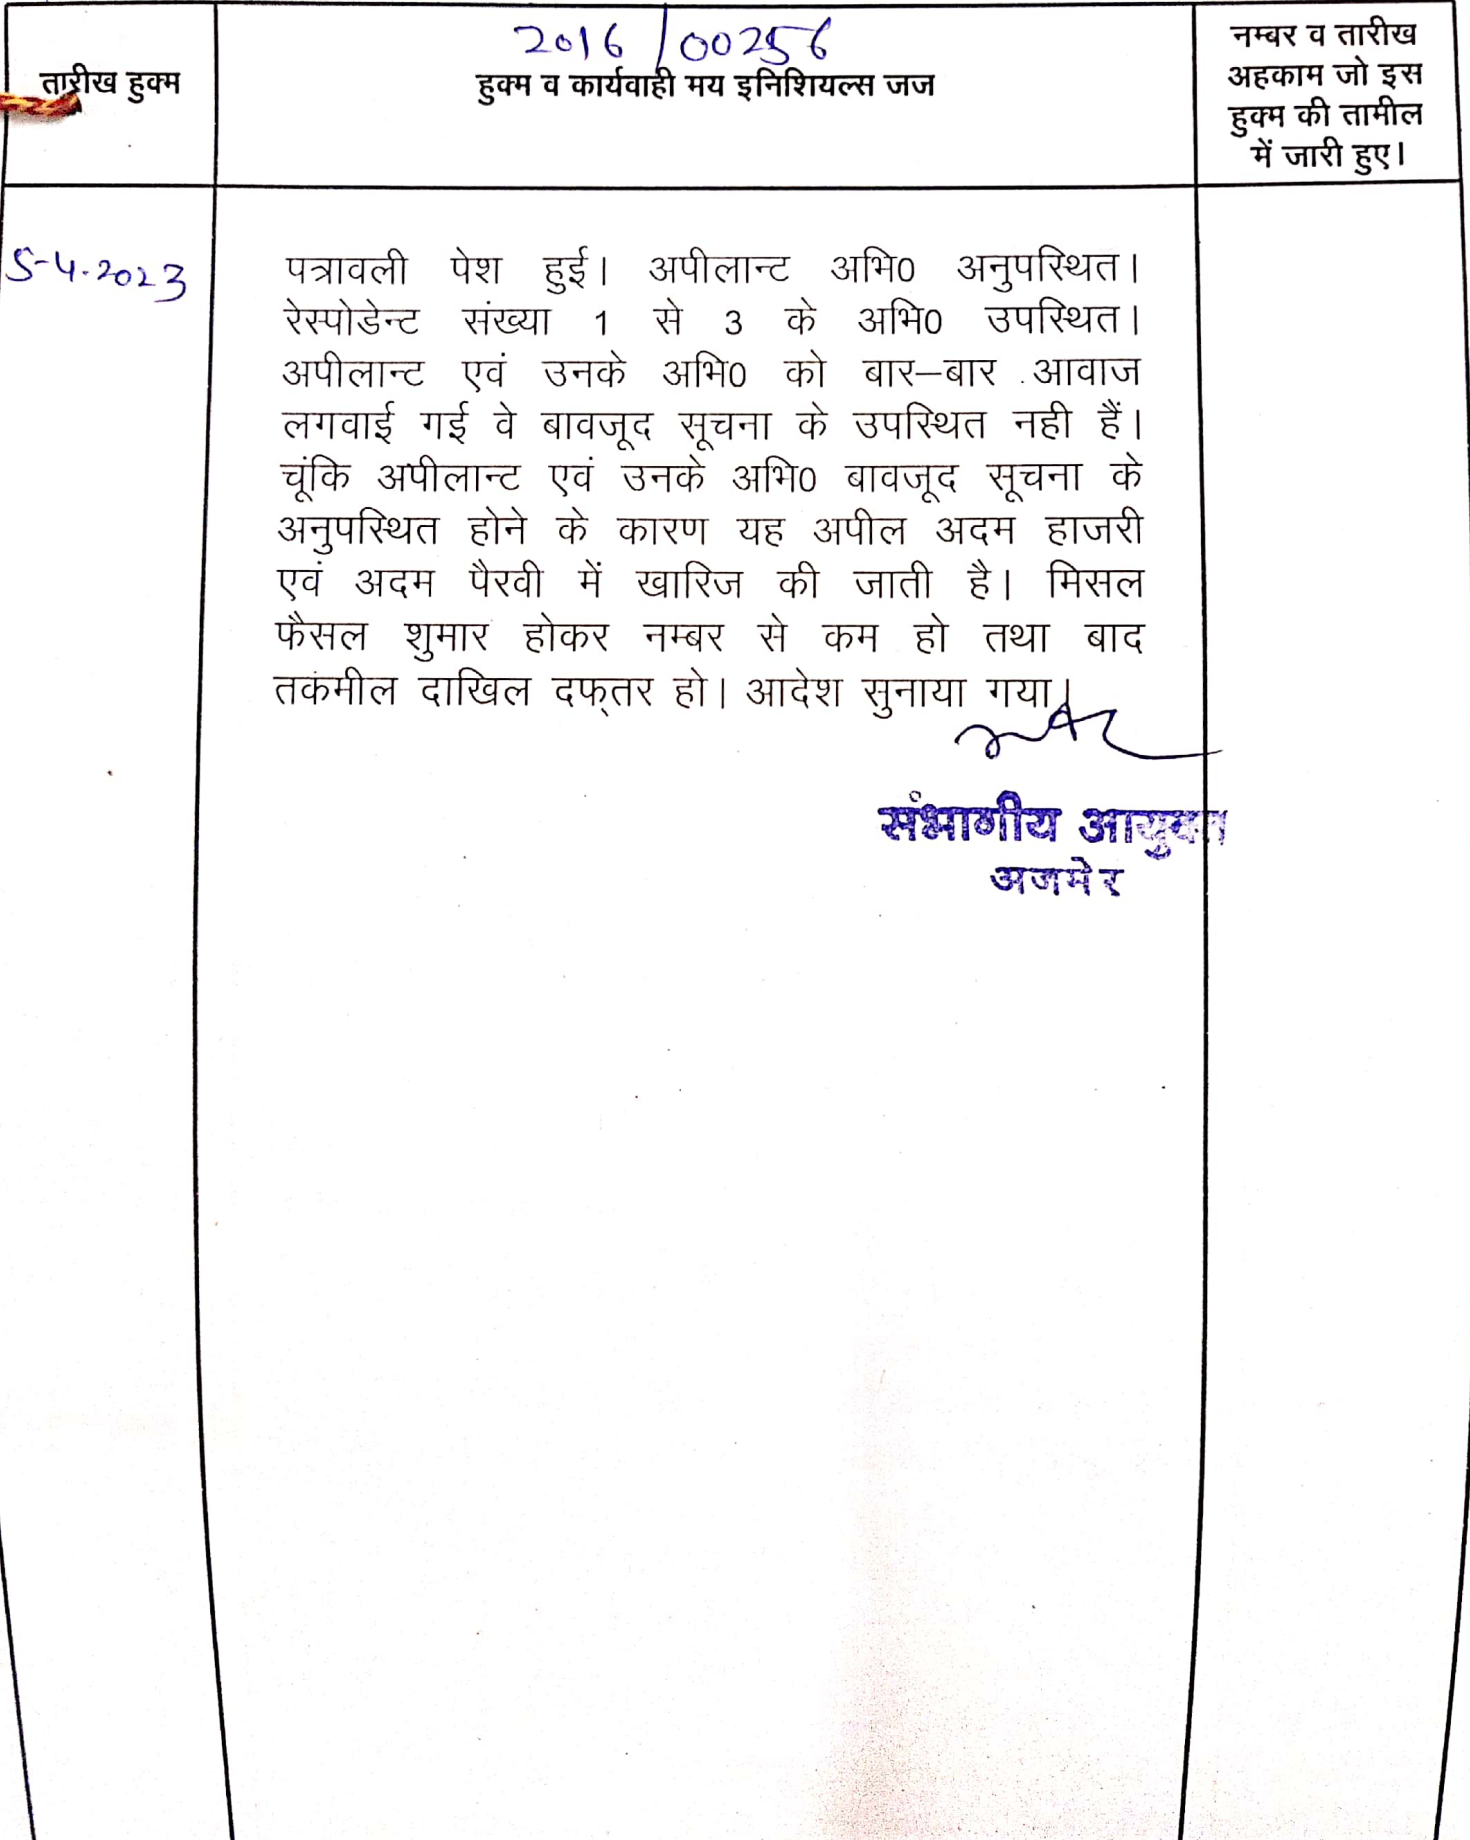 2016/00256
तारीख हुक्म
हुक्म व कार्यवाही मय इनिशियल्स जज
नम्बर व तारीख
अहकाम जो इस
हुक्म की तामील
में जारी हुए।
5-4-2023
पत्रावली पेश हुई। अपीलान्ट अभि0 अनुपस्थित।
रेस्पोडेन्ट संख्या 1 से 3 के अभि0 उपस्थित।
अपीलान्ट एवं उनके अभि0 को बार–बार आवाज
लगवाई गई वे बावजूद सूचना के उपस्थित नही हैं।
चूंकि अपीलान्ट एवं उनके अभि0 बावजूद सूचना के
अनुपस्थित होने के कारण यह अपील अदम हाजरी
एवं अदम पैरवी में खारिज की जाती है। मिसल
फैसल शुमार होकर नम्बर से कम हो तथा बाद
तकमील दाखिल दफ्तर हो। आदेश सुनाया गया।
संभागीय आयुक्त
अजमेर